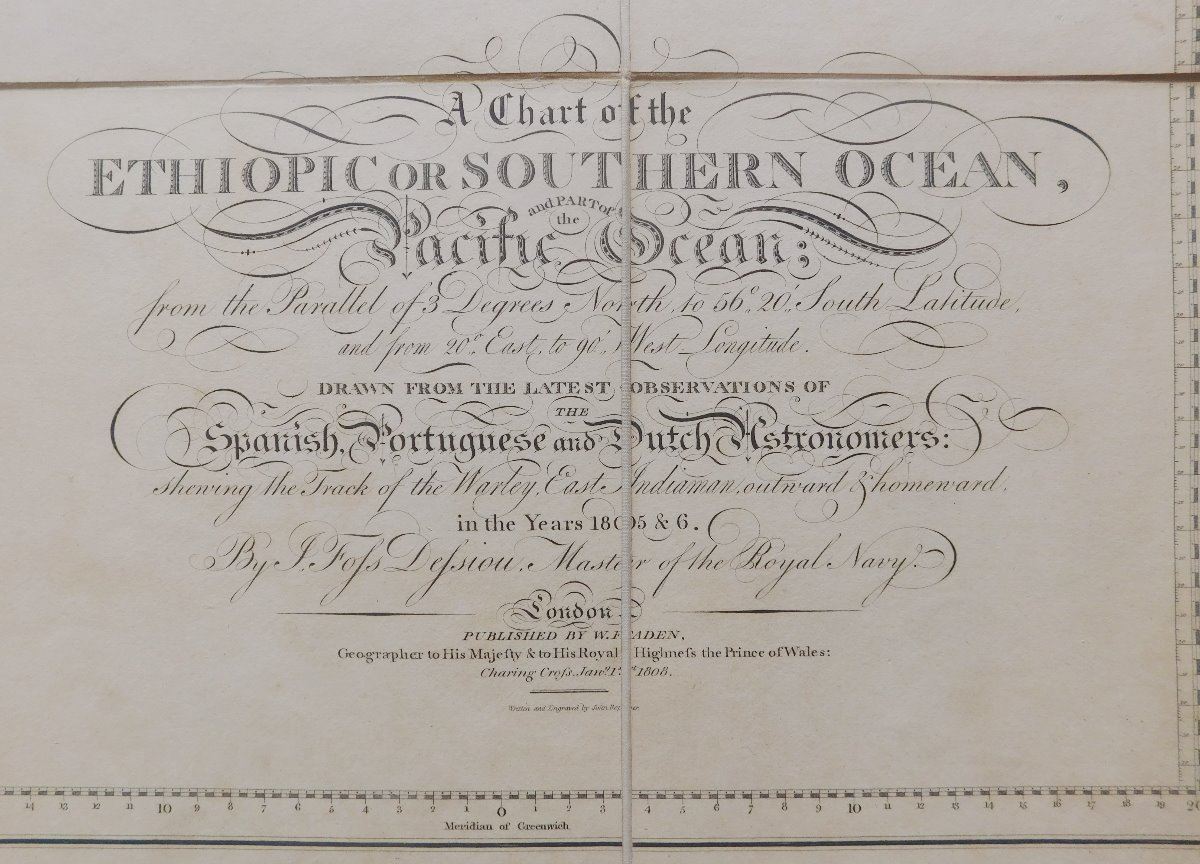 A Chart of the
ETHIOPIC OR SOUTHERN OCEAN,
and PART of
the
Pacific Ocean;
from the Parallel of 3 Degrees North, to 56°, 20', South Latitude,
and from 20° East, to 90°, West Longitude.
DRAWN FROM THE LATEST OBSERVATIONS OF
THE
Spanish, Portuguese and Dutch Astronomers:
shewing the Track of the Warley, East Indiaman, outward & homeward,
in the Years 1805 & 6.
By J. Foſs Deſsiou, Master of the Royal Navy.
London
PUBLISHED BY W. FADEN,
Geographer to His Majeſty & to His Royal Highneſs the Prince of Wales:
Charing Croſs, Janʸ. 1ˢᵗ. 1808.
Written and Engraved by
14 13 12 11 10 9 8 7 6 5 4 3 2 1 0 1 2 3 4 5 6 7 8 9 10 11 12 13 14 15 16 17 18 19 20
Meridian of Greenwich